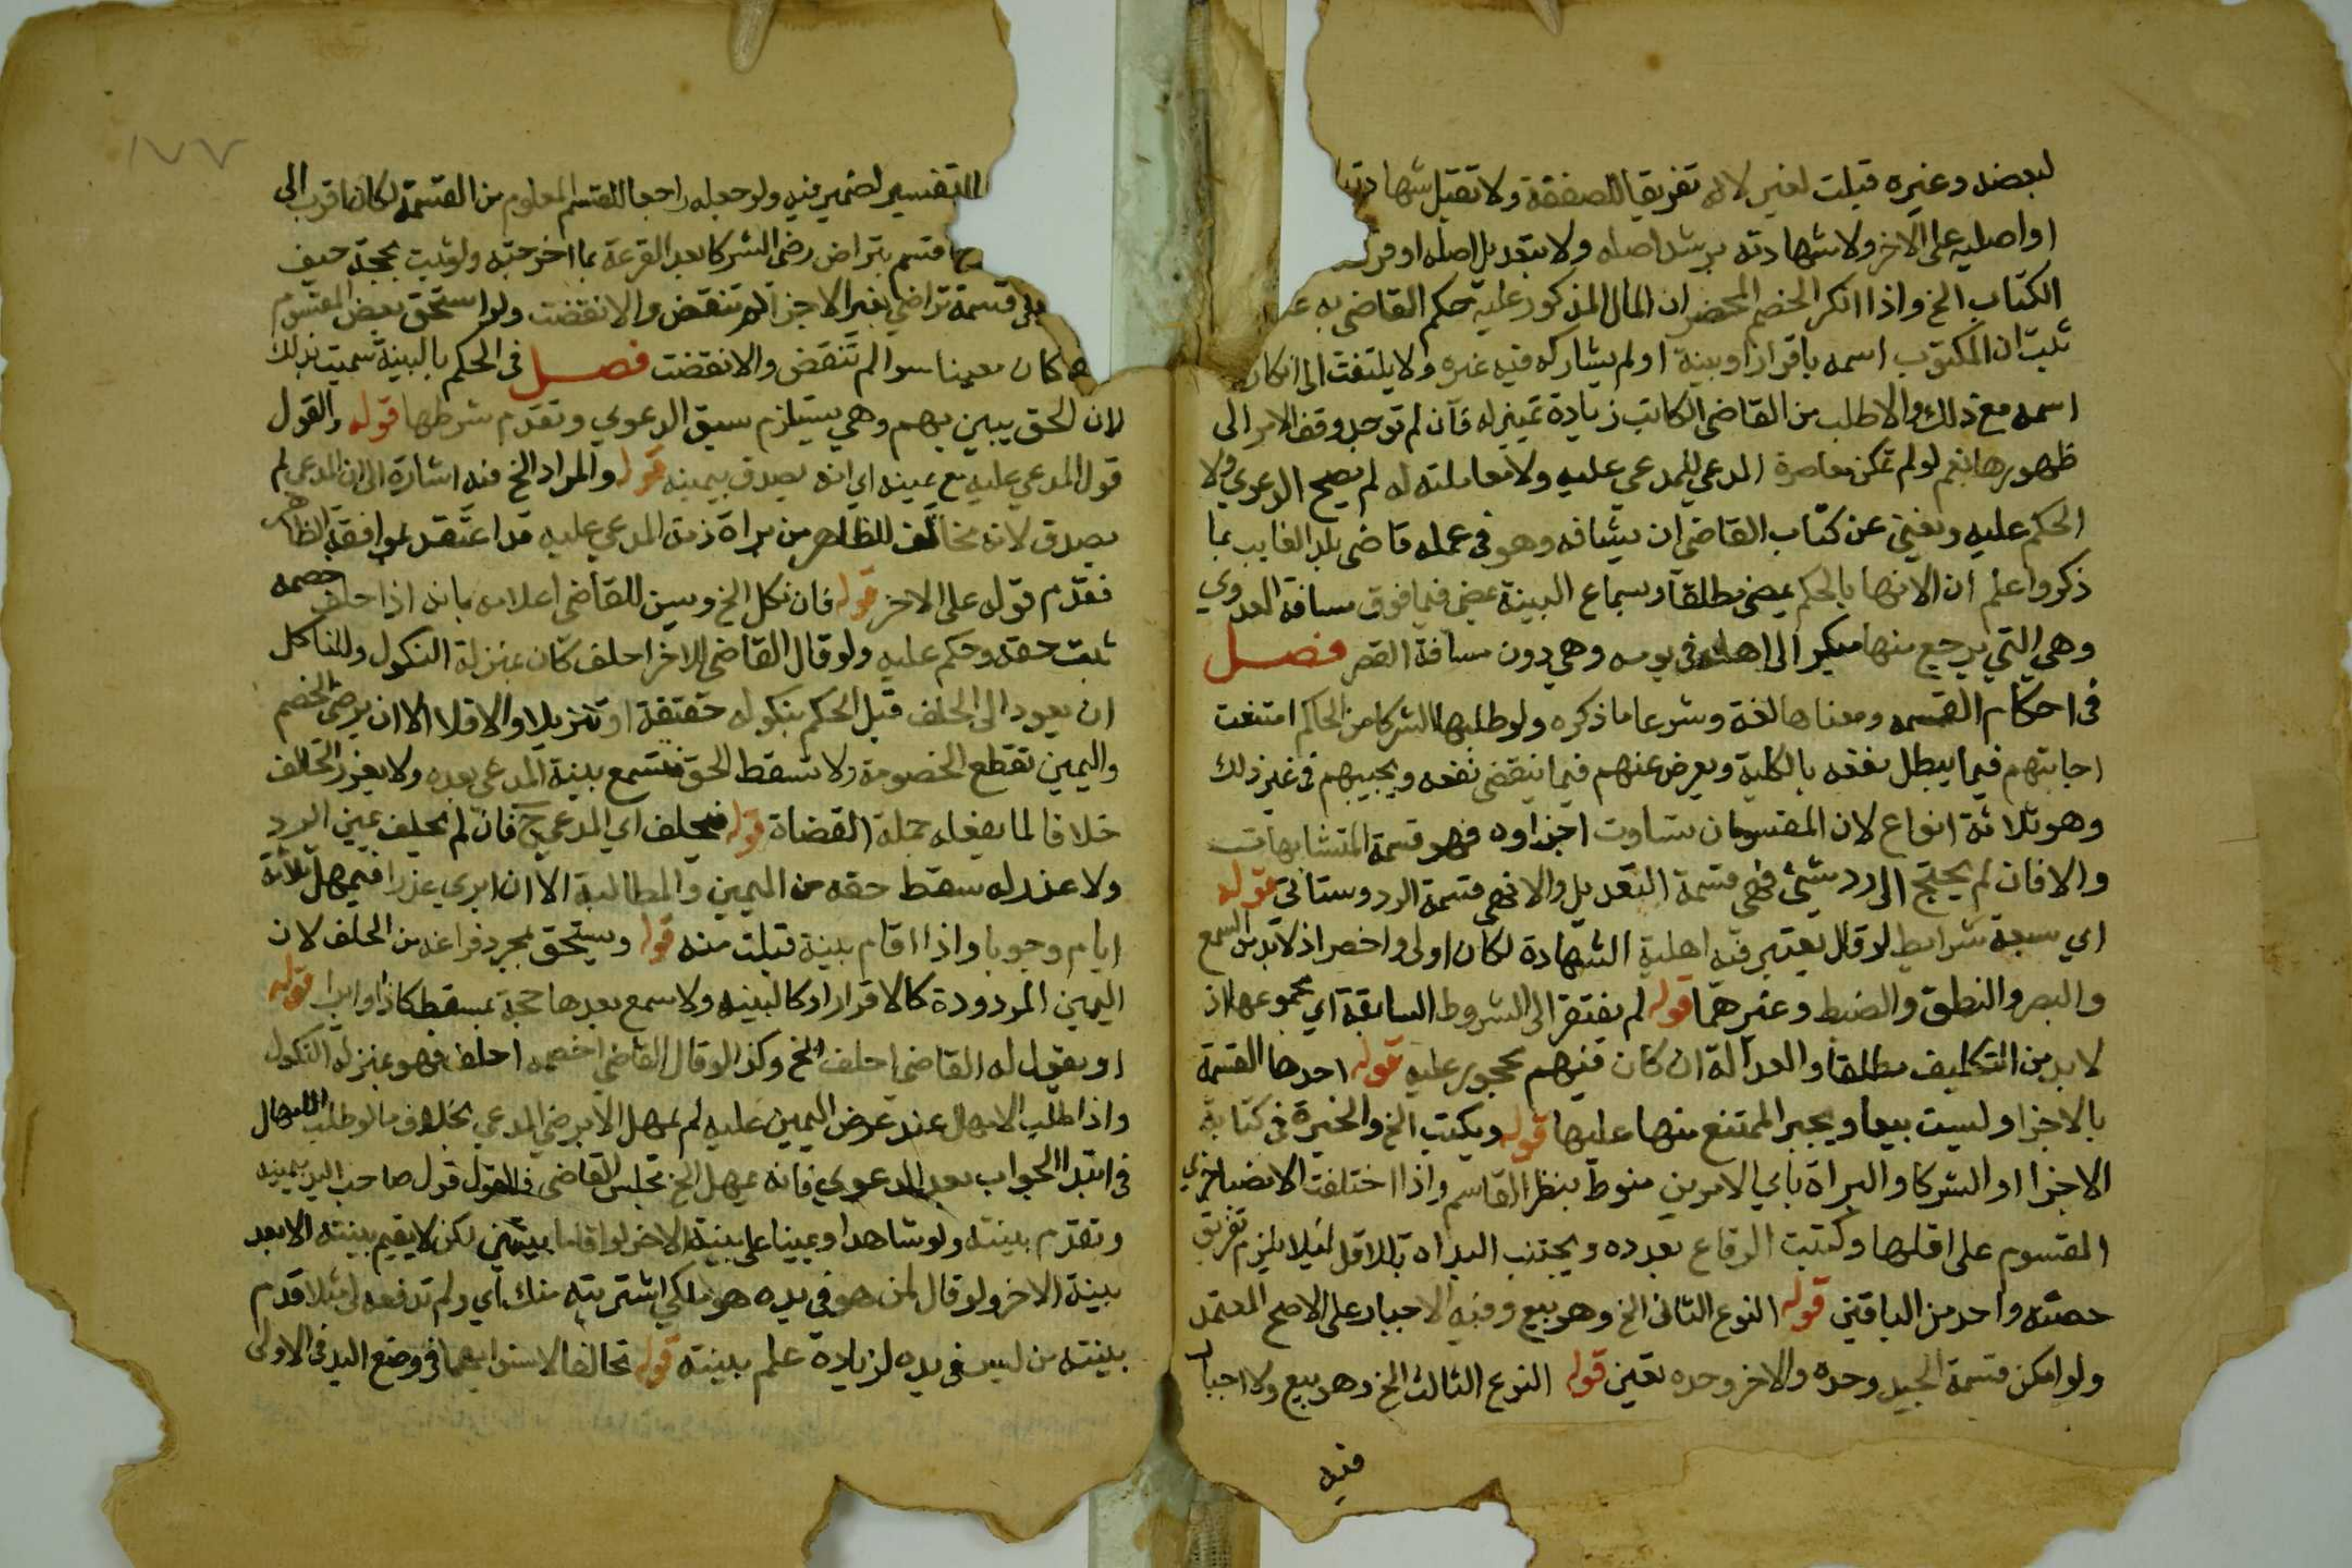 لبعضه وغيره قبلت لغير لاله تفريقا للصفقة ولا تقبل شهادته
او اصليه على الاخر ولا شهادته برشد اصله ولا بتعديل اصله او فرعه
الكتاب الخ واذا انكر الخصم المحضر ان المال المذكور عليه حكم القاضي به
ثبت ان المكتوب اسمه باقرار او بينة او لم يشاركه فيه غيره ولا يلتفت الى انكار
اسمه مع ذلك والا طلب من القاضي الكاتب زيادة تمييز له فان لم توجد وقف الامر الى
ظهورها نعم لو لم تمكن معاصرة المدعي للمدعي عليه ولا معاملته له لم تصح الدعوي ولا
الحكم عليه ويغني عن كتاب القاضي ان يشافه وهو في عمله قاضي بلد الغايب بما
ذكر واعلم ان الانها بالحكم يمضي مطلقا وبسماع البينة يمضي فيما فوق مسافة العدوي
وهي التي يرجع منها مبكر الى اهله في يومه وهي دون مسافة القصر فصل
في احكام القسمه ومعناها لغة وشرعا ما ذكره ولو طلبها الشركا من الحاكم امتنعت
اجابتهم فيما يبطل نفعه بالكلية ويعرض عنهم فيما ينقص نفعه ويجيبهم في غير ذلك
وهو ثلاثة انواع لان المقسوم ان تساوت اجزاوه فهو قسمة المتشابهات
والا فان لم يحتج الى رد شئ فهي قسمة التعديل والا فهي قسمة الرد وستاتي قوله
اي سبعة شرايط لو قال يعتبر فيه اهلية الشهادة لكان اولى واخصر اذ لا بد من السمع
والبصر والنطق والضبط وغيرهما قوله لم يفتقر الى الشروط السابقة اي مجموعها اذ
لا بد من التكليف مطلقا والعدالة ان كان فيهم محجور عليه قوله احدها القسمة
بالاجزا وليست بيعا ويجبر الممتنع منها عليها قوله ويكتب الخ والخيرة في كتابة
الاجزا او الشركا والبراة باي الامرين منوط بنظر القاسم واذا اختلفت الانصبا جزي
المقسوم على اقلها وكتبت الرقاع بعدده ويجتنب البداه بالاقل ليلا يلزم تفريق
حصته واحد من الباقين قوله النوع الثاني الخ وهو بيع وفيه الاجبار على الاصح المعتمد
ولو امكن قسمة الجيد وحده والاخر وحده تعين قوله النوع الثالث الخ وهو بيع ولا اجبار
فيه
١٧٧
للتفسير لضمير فيه ولو جعله راجعا للقسم المعلوم من القسمة لكان اقرب الى
قسم بتراض رضى الشركا بعد القرعة بما اخرجته ولو ثبت بحجة حيف
في قسمة تراضي بغير الاجزا لم تنقض والا نقضت ولو استحق بعض المقسوم
كان معينا سوا لم تنقض والا نقضت فصل في الحكم بالبينة سميت بذلك
لان الحق يبين بهم وهي يستلزم سبق الدعوي وتقدم شرطها قوله والقول
قول المدعي عليه مع يمينه اي انه يصدق بيمينه قوله والمراد الخ فيه اشارة الى ان المدعي لم
يصدق لانه مخالف للظاهر من براة ذمة المدعي عليه قد اعتقد لموافقة الظاهر
فقدم قوله على الاخر قوله فان نكل الخ ويسن للقاضي اعلامه بانه اذا حلف خصمه
ثبت حقه وحكم عليه ولو قال القاضي للاخر احلف كان بمنزلة النكول وللناكل
ان يعود الى الحلف قبل الحكم بنكوله حقيقة او تنزيلا والا فلا الا ان يرضى الخصم
واليمين تقطع الخصومة ولا تسقط الحق فتسمع بينة المدعي بعده ولا يعزر الحالف
خلافا لما يفعله جملة القضاة قوله فيحلف اي المدعي ح فان لم يحلف يمين الرد
ولا عذر له سقط حقه من اليمين والمطالبة الا ان ابدي عذرا فيمهل ثلاثة
ايام وجوبا واذا اقام بينة قبلت منه قوله ويستحق بمجرد فراغه من الحلف لان
اليمين المردودة كالاقرار او كالبينه ولا سمع بعدها حجة بمسقط كاذا وابرا قوله
او يقول له القاضي احلف الخ وكذا لو قال القاضي لخصمه احلف فهو بمنزلة النكول
واذا طلب الامهال عند عرض اليمين عليه لم يمهل الا برضي المدعي بخلاف ما لو طلب الامهال
في ابتدا الجواب بعد الدعوي فانه يمهل الخ مجلس القاضي فالقول قول صاحب اليد بيمينه
وتقدم بينته ولو شاهدا ويمينا على بينة الاخر لو اقاما بينتين لكن لا يقيم بينته الا بعد
بينة الاخر ولو قال لمن هو في يده هو ملكي اشتريته منك اي ولم تدفعه لي مثلا قدم
بينته من ليس في يده لزيادة علم بينته قوله تحالفا لاستوايهما في وضع اليد في الاولى